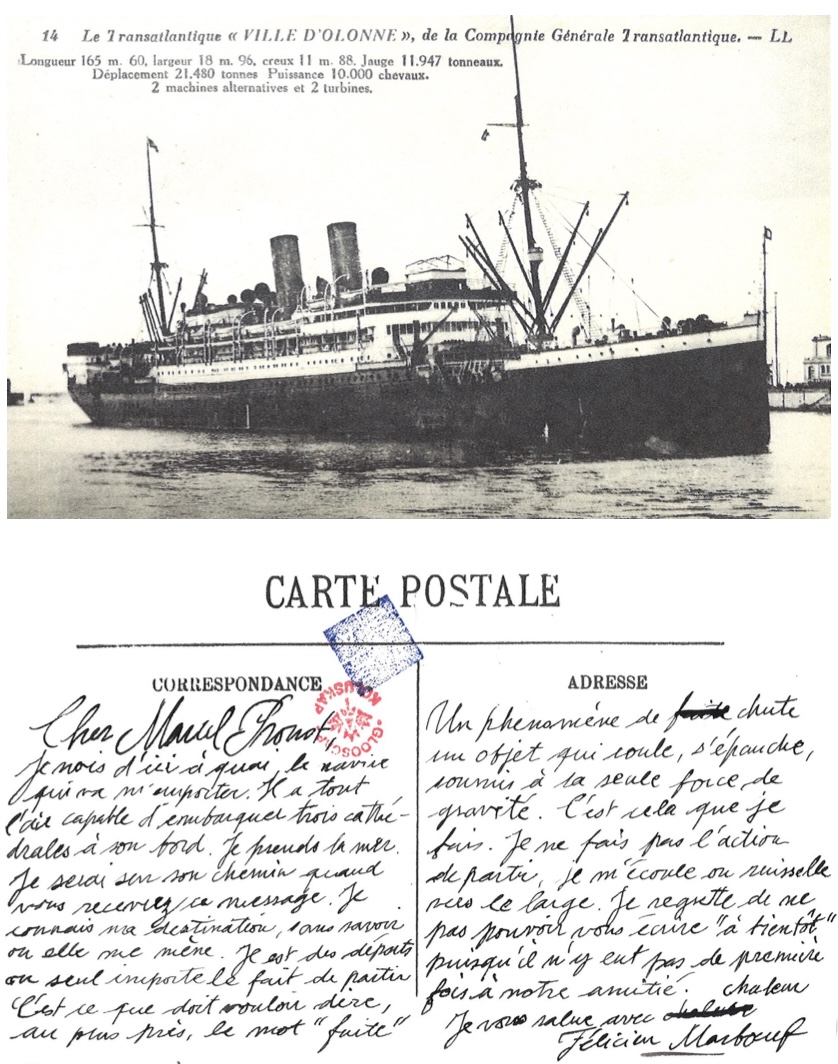 14 Le Transatlantique « VILLE D'OLONNE », de la Compagnie Générale Transatlantique. — LL
Longueur 165 m. 60, largeur 18 m. 96, creux 11 m. 88. Jauge 11.947 tonneaux.
Déplacement 21.480 tonnes Puissance 10.000 chevaux.
2 machines alternatives et 2 turbines.
CARTE POSTALE
CORRESPONDANCE
KOLUSKAP
GLOOSCAP
Cher Marcel Proust,
Je vois d'ici à quai, le navire
qui va m'emporter. Il a tout
l'air capable d'embarquer trois cathé-
drales à son bord. Je prends la mer.
Je serai sur son chemin quand
vous recevrez ce message. Je
connais ma destination, sans savoir
où elle me mène. Il est des départs
où seul importe le fait de partir
C'est ce que doit vouloir dire,
au plus près, le mot "fuite"
ADRESSE
Un phénomène de chute
un objet qui coule, s'épanche,
soumis à la seule force de
gravité. C'est cela que je
fuis. Je ne fais pas l'action
de partir, je m'écoule ou ruisselle
vers le large. Je regrette de ne
pas pouvoir vous écrire "à bientôt"
puisqu'il n'y eut pas de première
fois à notre amitié.
Je vous salue avec chaleur
Félicien Marboeuf